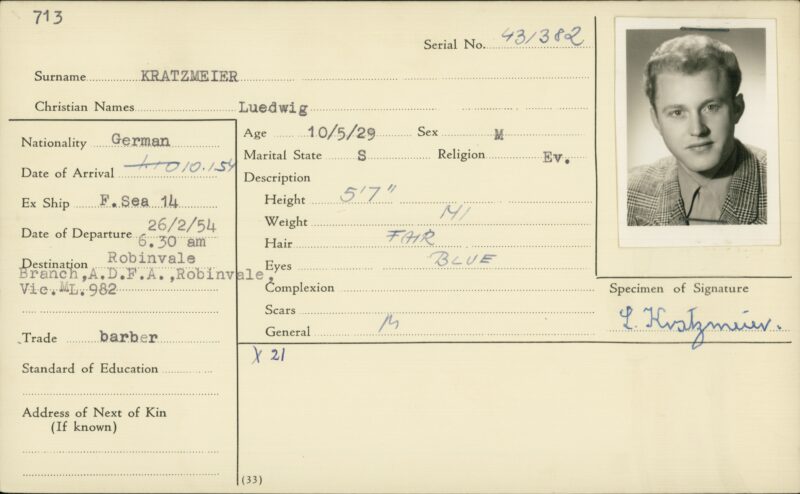 713
Serial No. 43/382
Surname KRATZMEIER
Christian Names Luedwig
Nationality German
Date of Arrival 10.1.54
Ex Ship F.Sea 14
Date of Departure 26/2/54
6.30 am
Destination Robinvale
Branch,A.D.F.A.,Robinvale,
Vic. ML.982
Trade barber
Standard of Education
Address of Next of Kin
(If known)
Age 10/5/29 Sex M
Marital State S Religion Ev.
Description
Height 5'7"
Weight 141
Hair FAIR
Eyes BLUE
Complexion
Scars
General M
X 21
(33)
Specimen of Signature
L. Kratzmeier.